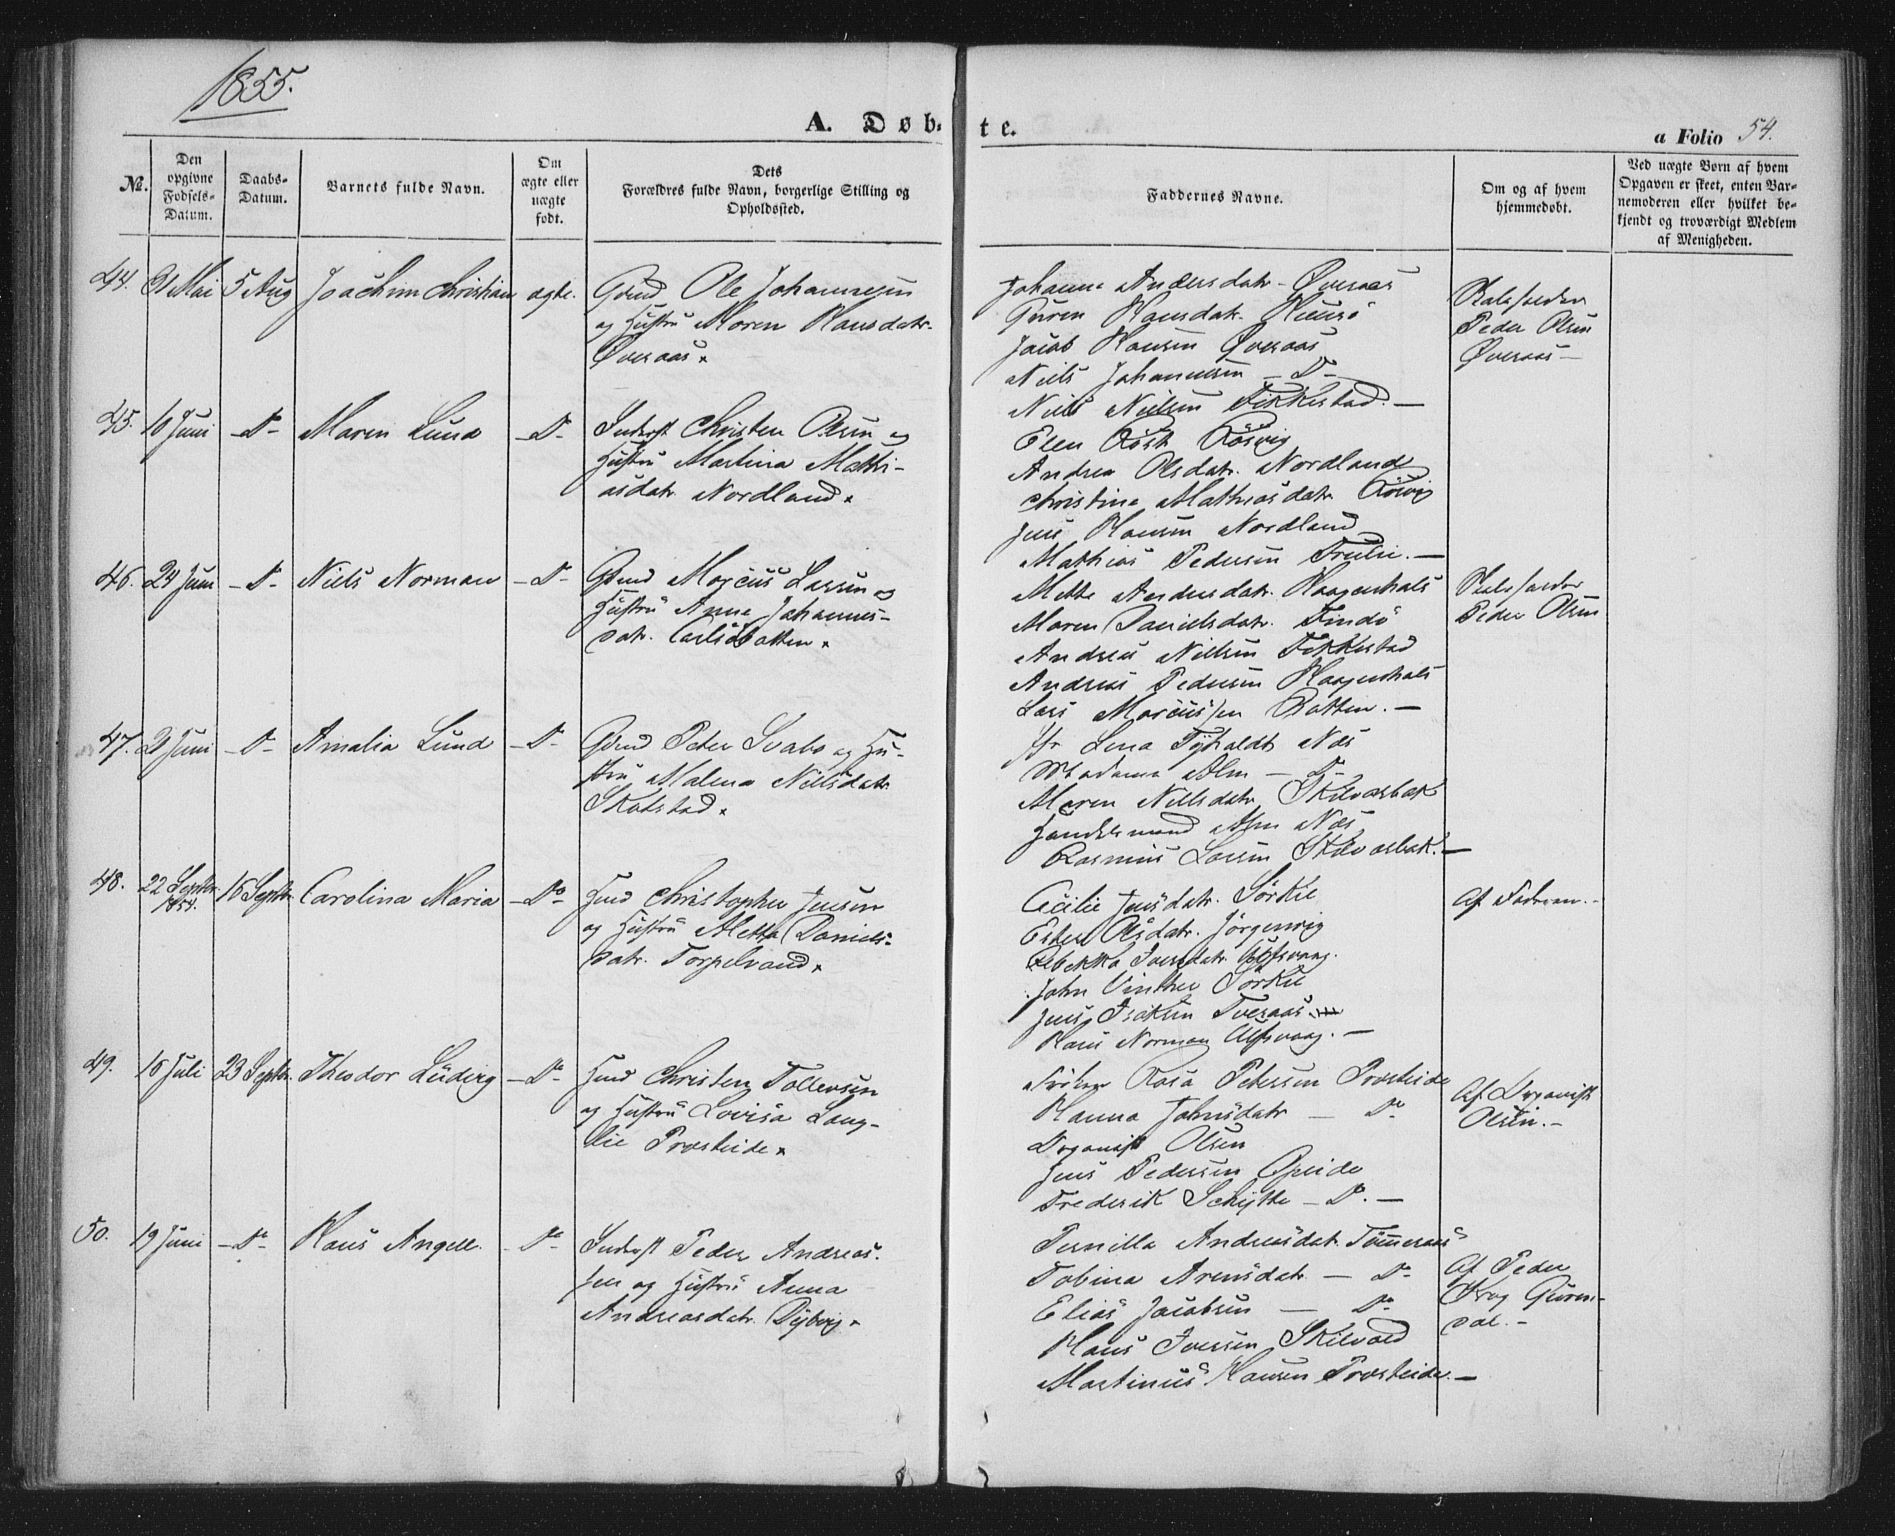 1855.
A. Døb-
te.
a Folio 54.
No.
Den opgivne Fødsels-Datum.
Daabs-Datum.
Barnets fulde Navn.
Om ægte eller uægte født.
Dets
Forældres fulde Navn, borgerlige Stilling og
Opholdssted.
Faddernes Navne.
Om og af hvem
hjemmedøbt.
Ved uægte Børn af hvem
Opgaven er skeet, enten Bar-
nemoderen eller hvilket be-
kjendt og troværdigt Medlem
af Menigheden.
44. 31 Mai 5 Aug Joachim Christian ægte. Gmd Ole Johannesen
og Hustru Maren Hansdatr.
Øveraas.
Johanna Andersdatr. Øveraas
Guren Hansdatr.
Jacob Hansen Øveraas
Niels Johannesen - Do -
Niels Nielsen Fikkestad. -
Peder Olsen
Øveraas -
45. 16 Juni - Do - Maren Lund - Do - Inderst Christen Olsen og
Hustru Martina Mathi-
asdatr. Nordland.
Elen Røst Røsvig
Andrea Olsdatr. Nordland
Christina Mathiasdatr. Røsvig
Jens Hansen Nordland
Mathias Pedersen
46. 24 Juni - Do - Niels Norman - Do - Gmd Marcus Larsen og
Hustru Anna Johannes-
datr.
Mette Andersdatr. Haagenhals
Maren Danielsdatr. Findø
Andreas Nielsen Fikkestad
Andreas Pedersen Haagenhals
Lars Marcussen Botten. -
Peder Olsen
47. 2 Juni - Do - Amalia Lund - Do - Gmd Peter Svabo og Hu-
stru Malena Nielsdatr.
Skotstad.
Jfr Lena Tyholdt Næs
Madame Alm - Do -
Maren Nielsdatr. Skilvasbak
Handelsmand Alm Næs
Rasmus Larsen Skilvasbak. -
48. 22 Septbr. 1854. 16 Septbr. Carolina Maria - Do - Hmd Christopher Jensen
og Hustru Aletta Daniels-
datr. Torpelvand.
Cecilie Jensdatr. Sørkil
Ester Olsdatr. Jørgenvig
Rebekka Iversdatr. Alfsvaag.
John Vinther Sørkil
Jens Isaksen Tveraas.
Hans Norman Alfsvaag. -
Af Faderen. -
49. 16 Juli 23 Septbr. Theodor Ludvig - Do - Hmd Christen Tollevsen
og Hustru Lovisa Lang-
lie Presteide.
Frøken Rosa Petersen Presteide
Hanna Johnsdatr - Do -
Organist Olsen
Jens Pedersen Opeide
Frederik Schytte - Do. -
Af Organist
Olsen. -
50. 19 Juni - Do - Hans Angell. - Do - Inderst Peder Andreas-
sen og Hustru Anna
Andreasdatr. Dybvig.
Pernilla Andreasdatr. Tømmeraas
Tobina Arensdatr - Do -
Elias Jacobsen - Do -
Hans Iversen Skilvold
Martinus Hansen Presteide. -
Af Peder
Krog Guren-
dal. -